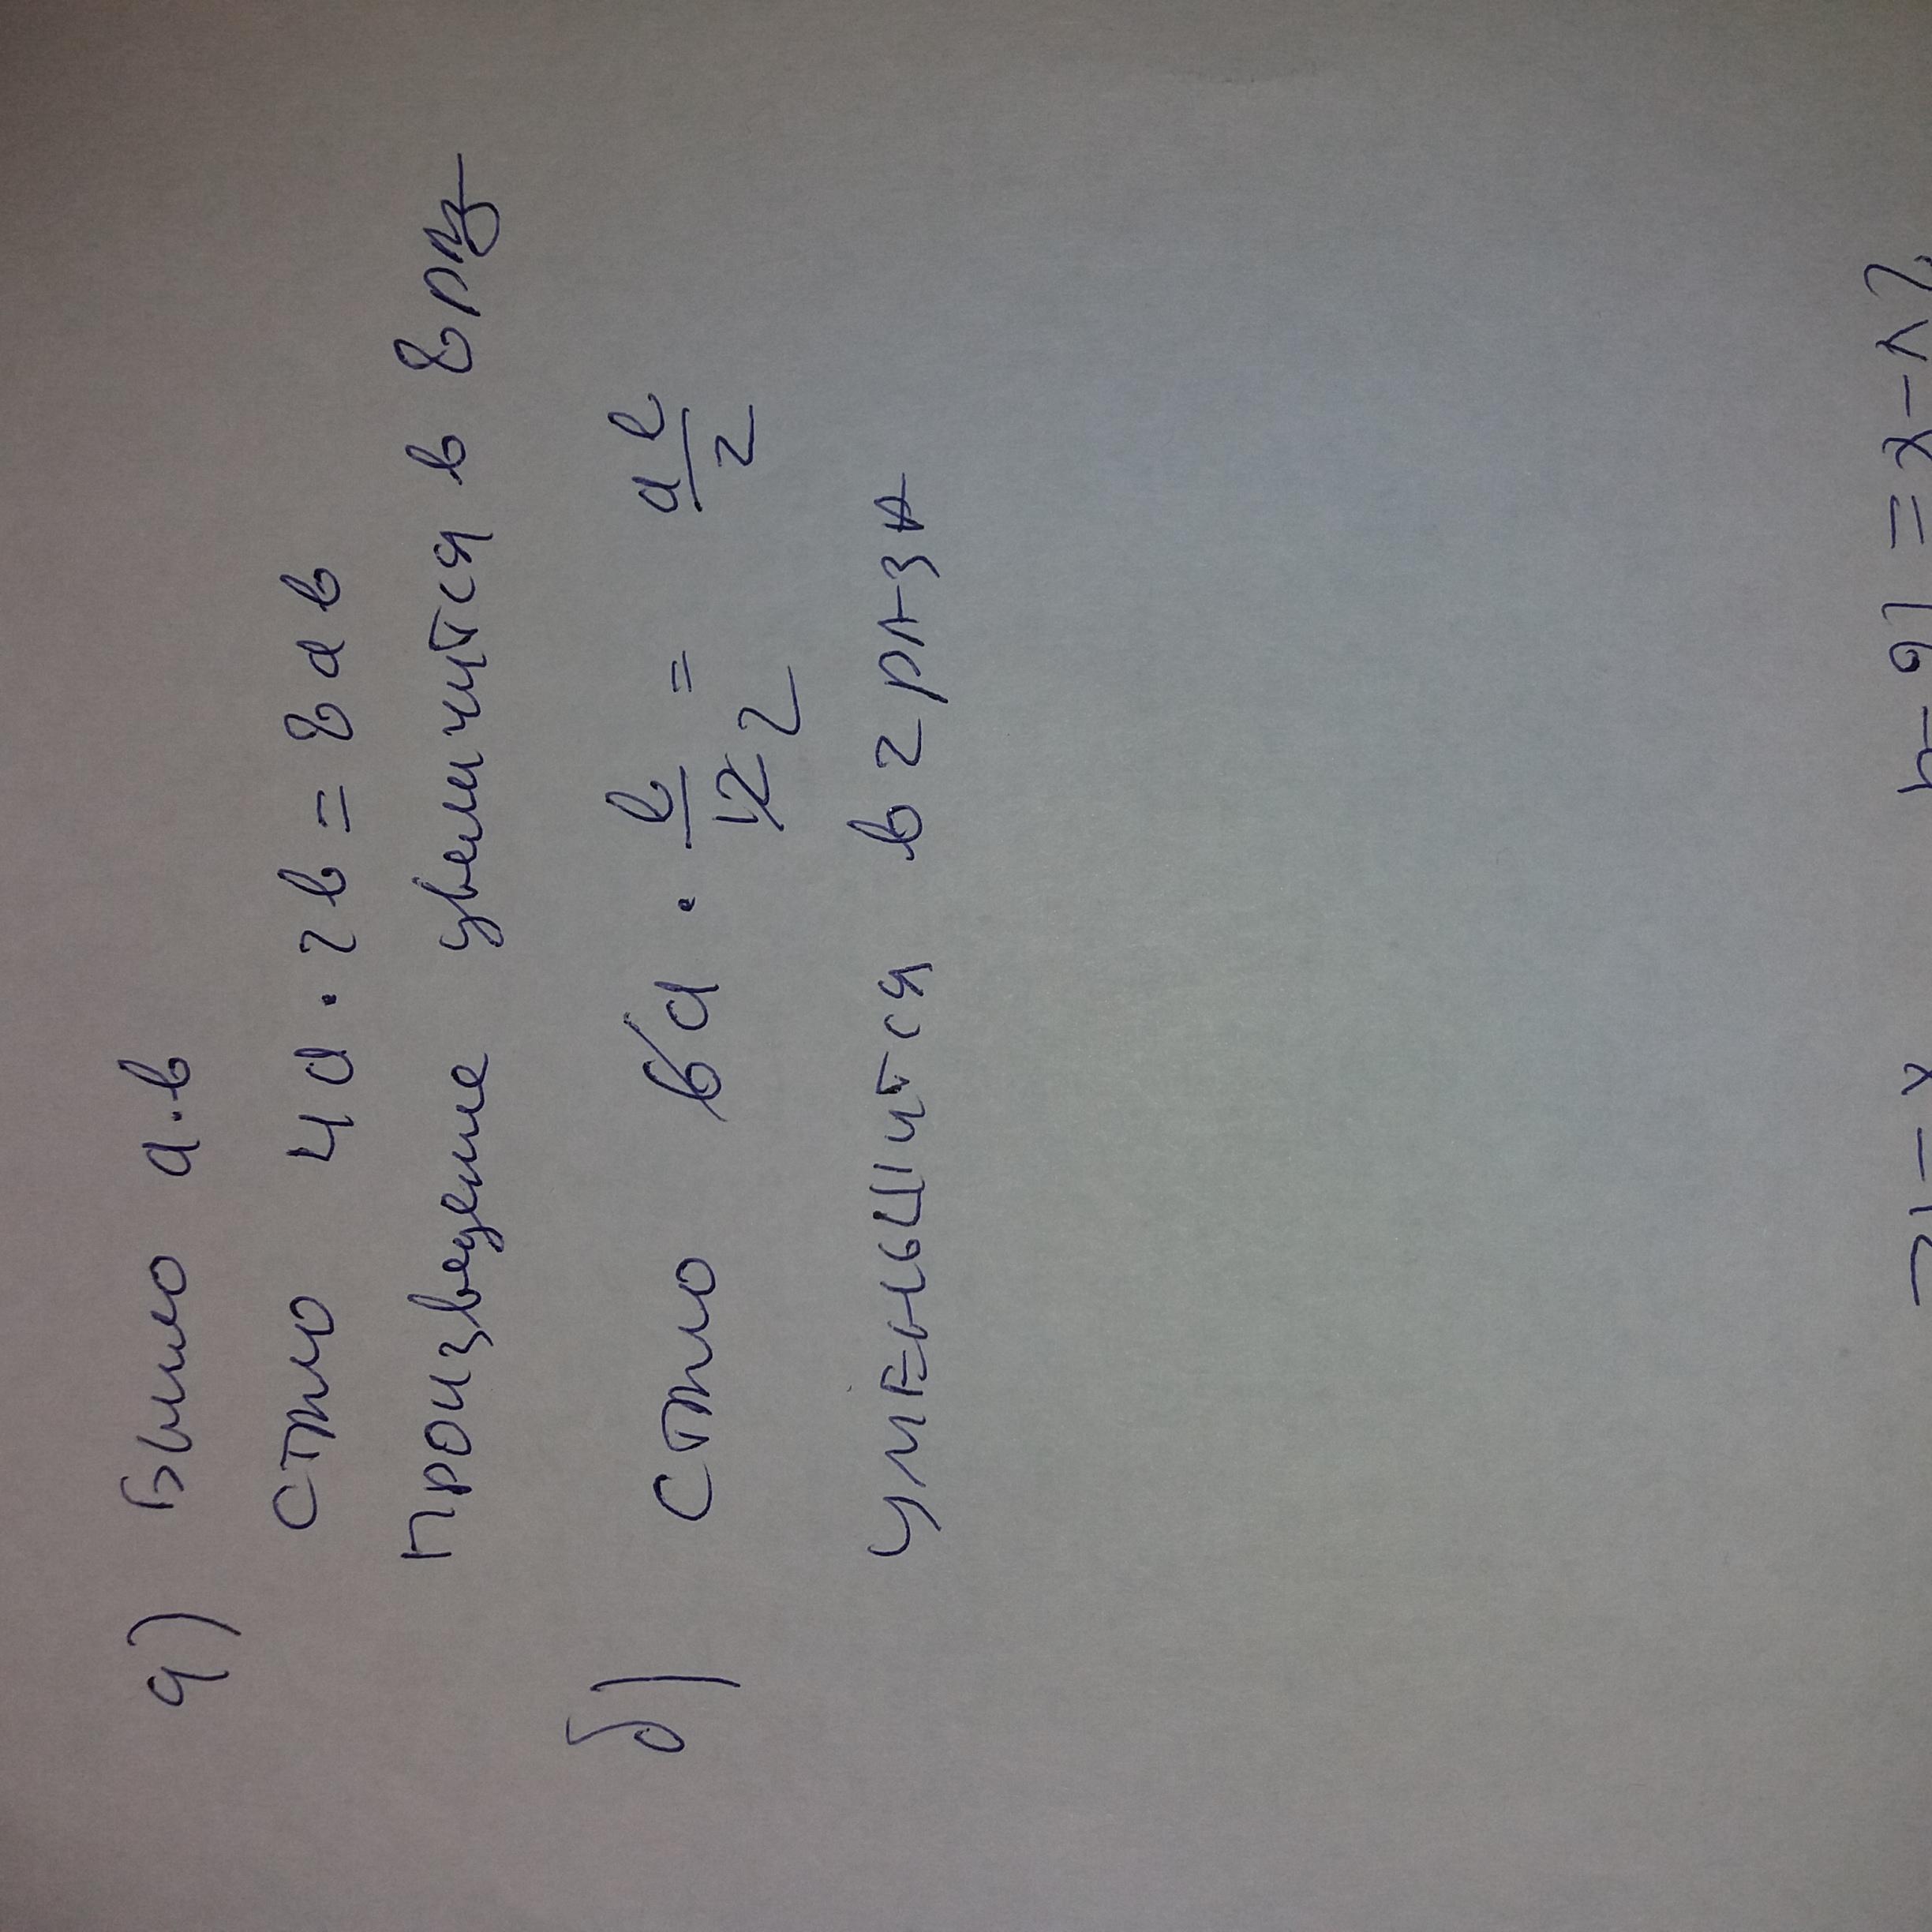 а) Было а·в
Стало 4а·2в = 8ав
Произведение увеличится в 8 раз
б) Стало 6а · в/12 2 = ав/2
уменьшится в 2 раза